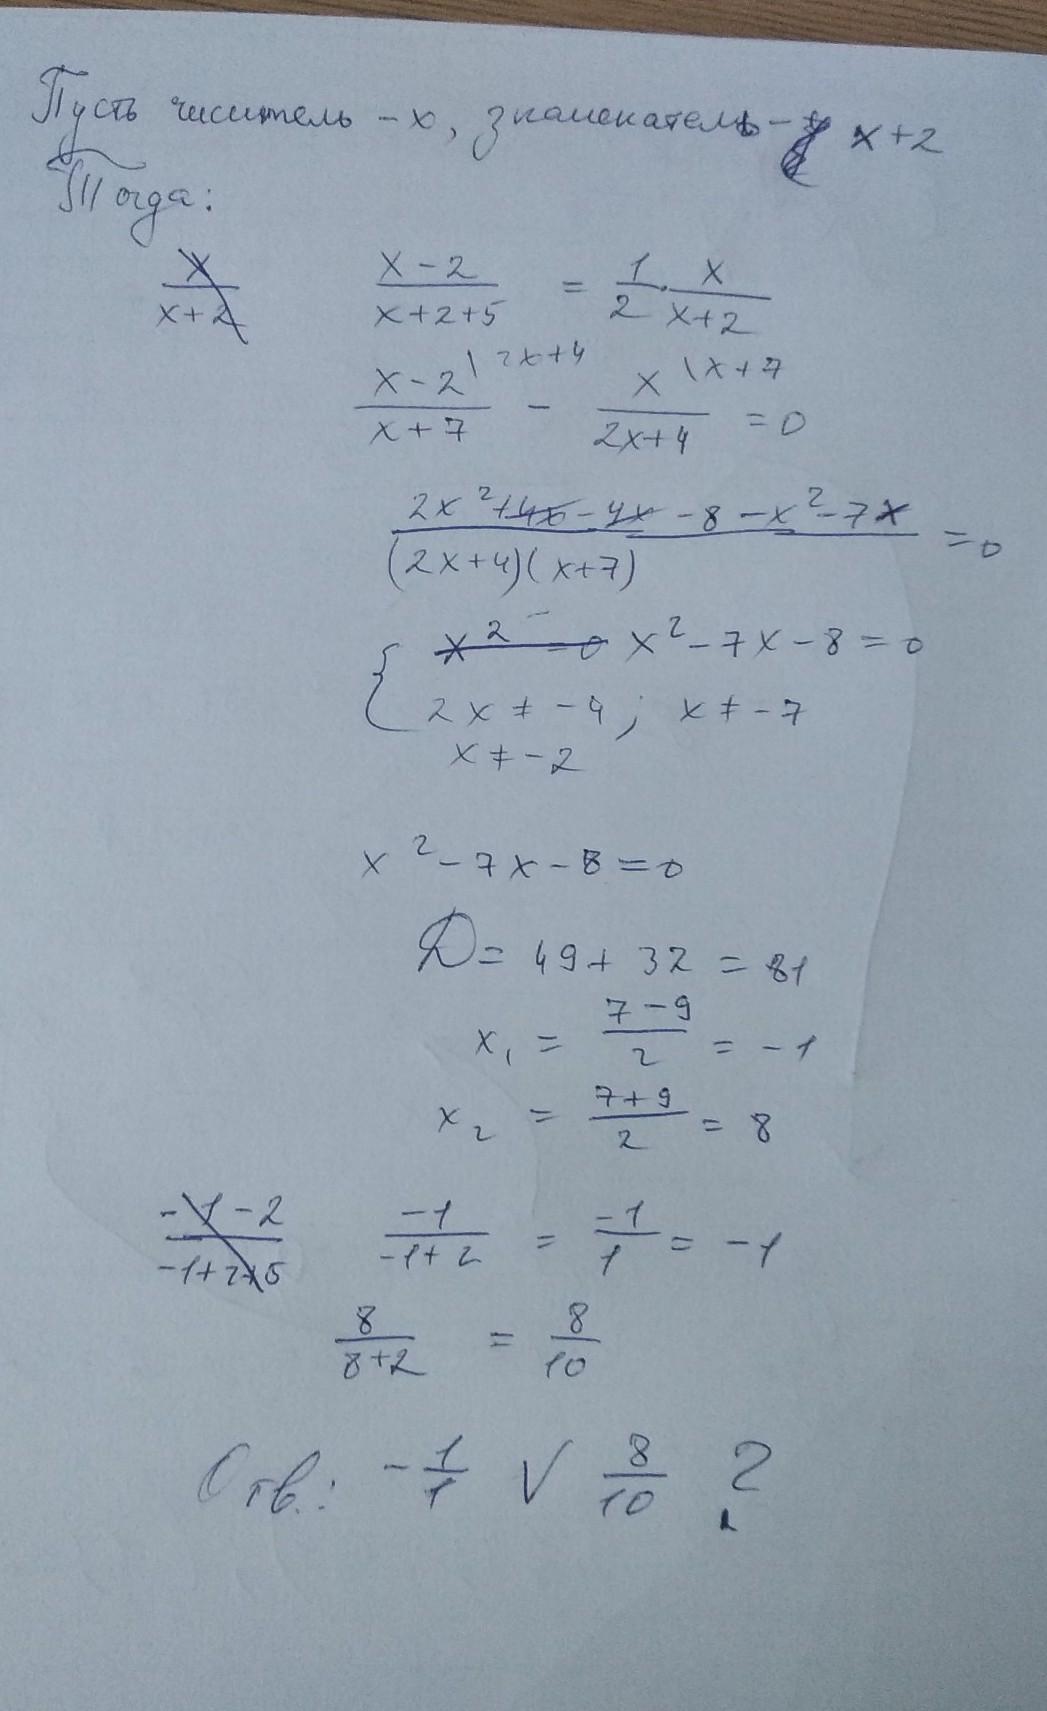 Пусть числитель - x, знаменатель - x+2
Тогда:
x/(x+2) (x-2)/(x+2+5) = 1/2 · x/(x+2)
(x-2)/(x+7) |2x+4 - x/(2x+4) |x+7 = 0
(2x²+4x-4x-8-x²-7x)/((2x+4)(x+7)) = 0
{ x² = 0 x²-7x-8=0
2x ≠ -4; x ≠ -7
x ≠ -2
x²-7x-8=0
D = 49+32 = 81
x₁ = (7-9)/2 = -1
x₂ = (7+9)/2 = 8
(-1-2)/(-1+2+5) (-1)/(-1+2) = (-1)/1 = -1
8/(8+2) = 8/10
Отв.: -1/1 V 8/10 ?